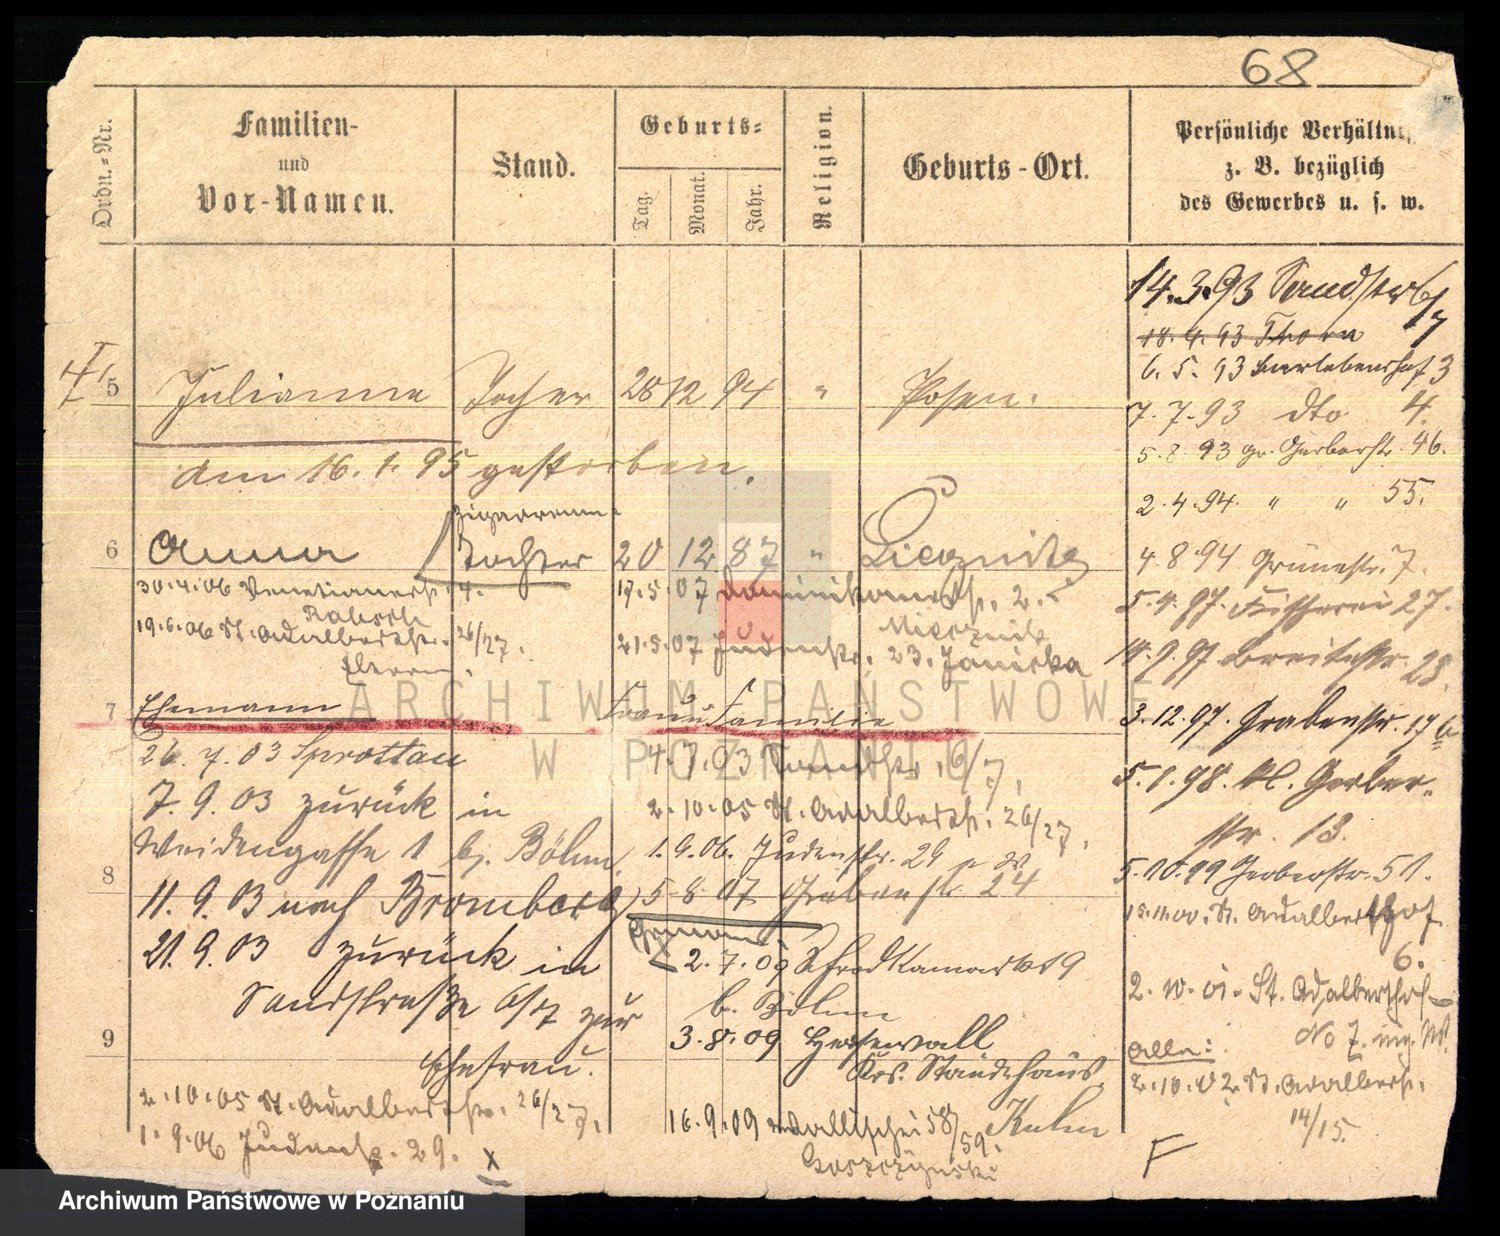 68
Ordn.-Nr.
Familien-
und
Vor-Namen.
Stand.
Geburts-
Tag.
Monat.
Jahr.
Religion.
Geburts-Ort.
Persönliche Verhältn
z. B. bezüglich
des Gewerbes u. s. w.
14.3.93 Sandstr 6/7
18.4.93 Thorn
6. 5. 93 3
7.7.93 dto 4.
5.8.93 gr. Gerberstr. 46.
2.4.94. " " 55.
4.8.94 Grünestr. 7.
5.4.97. Fischerei 27.
14.9.97 Breitestr. 23.
3.12.97. Grabenstr. 17
5.1.98. Kl. Gerber-
str. 13.
5.10.99 Gerberstr. 51.
15.11.00. St. Adalberthof
6.
2.10.01. St. Adalberthof
No 7.
Alle:
2.10.02 St. Adalbertstr.
14/15.
F
5 Julianna Tochter 28 12 94 " Posen.
am 16.1.95 gestorben.
Zigarren
6 Anna Tochter 20 12 87 " Liegnitz
30.4.06 Venetianerstr. 4.
19.6.06 St. Adalbertstr. 26/27.
17.5.07 Dominikanerstr. 2.
21.5.07 Judenstr. 23. Janicka
7 Ehemann
26.7.03 Sprottau
7.9.03 zurück in
Weidengasse 1 bj. Böhm.
8
11.9.03 nach Bromberg
21.9.03 zurück in
Sandstraße 6/7 zur
9
Ehefrau.
2.10.05 St. Adalbertstr. 26/27.
1.9.06 Judenstr. 29. x
Frau u. Familie
4.7.03 Sandstr. 6/7.
2.10.05 St. Adalbertstr. 26/27.
1.9.06. Judenstr. 29
5.8.07 Grabenstr. 24
Ehemann:
2.7.09 Schrodkamarkt 9
b. Böhm
3.8.09
Krs. Ständehaus.
16.9.09 Wallischei 58/59. Kuhn
Goszczynski
ARCHIWUM PAŃSTWOWE
W POZNANIU
Archiwum Państwowe w Poznaniu